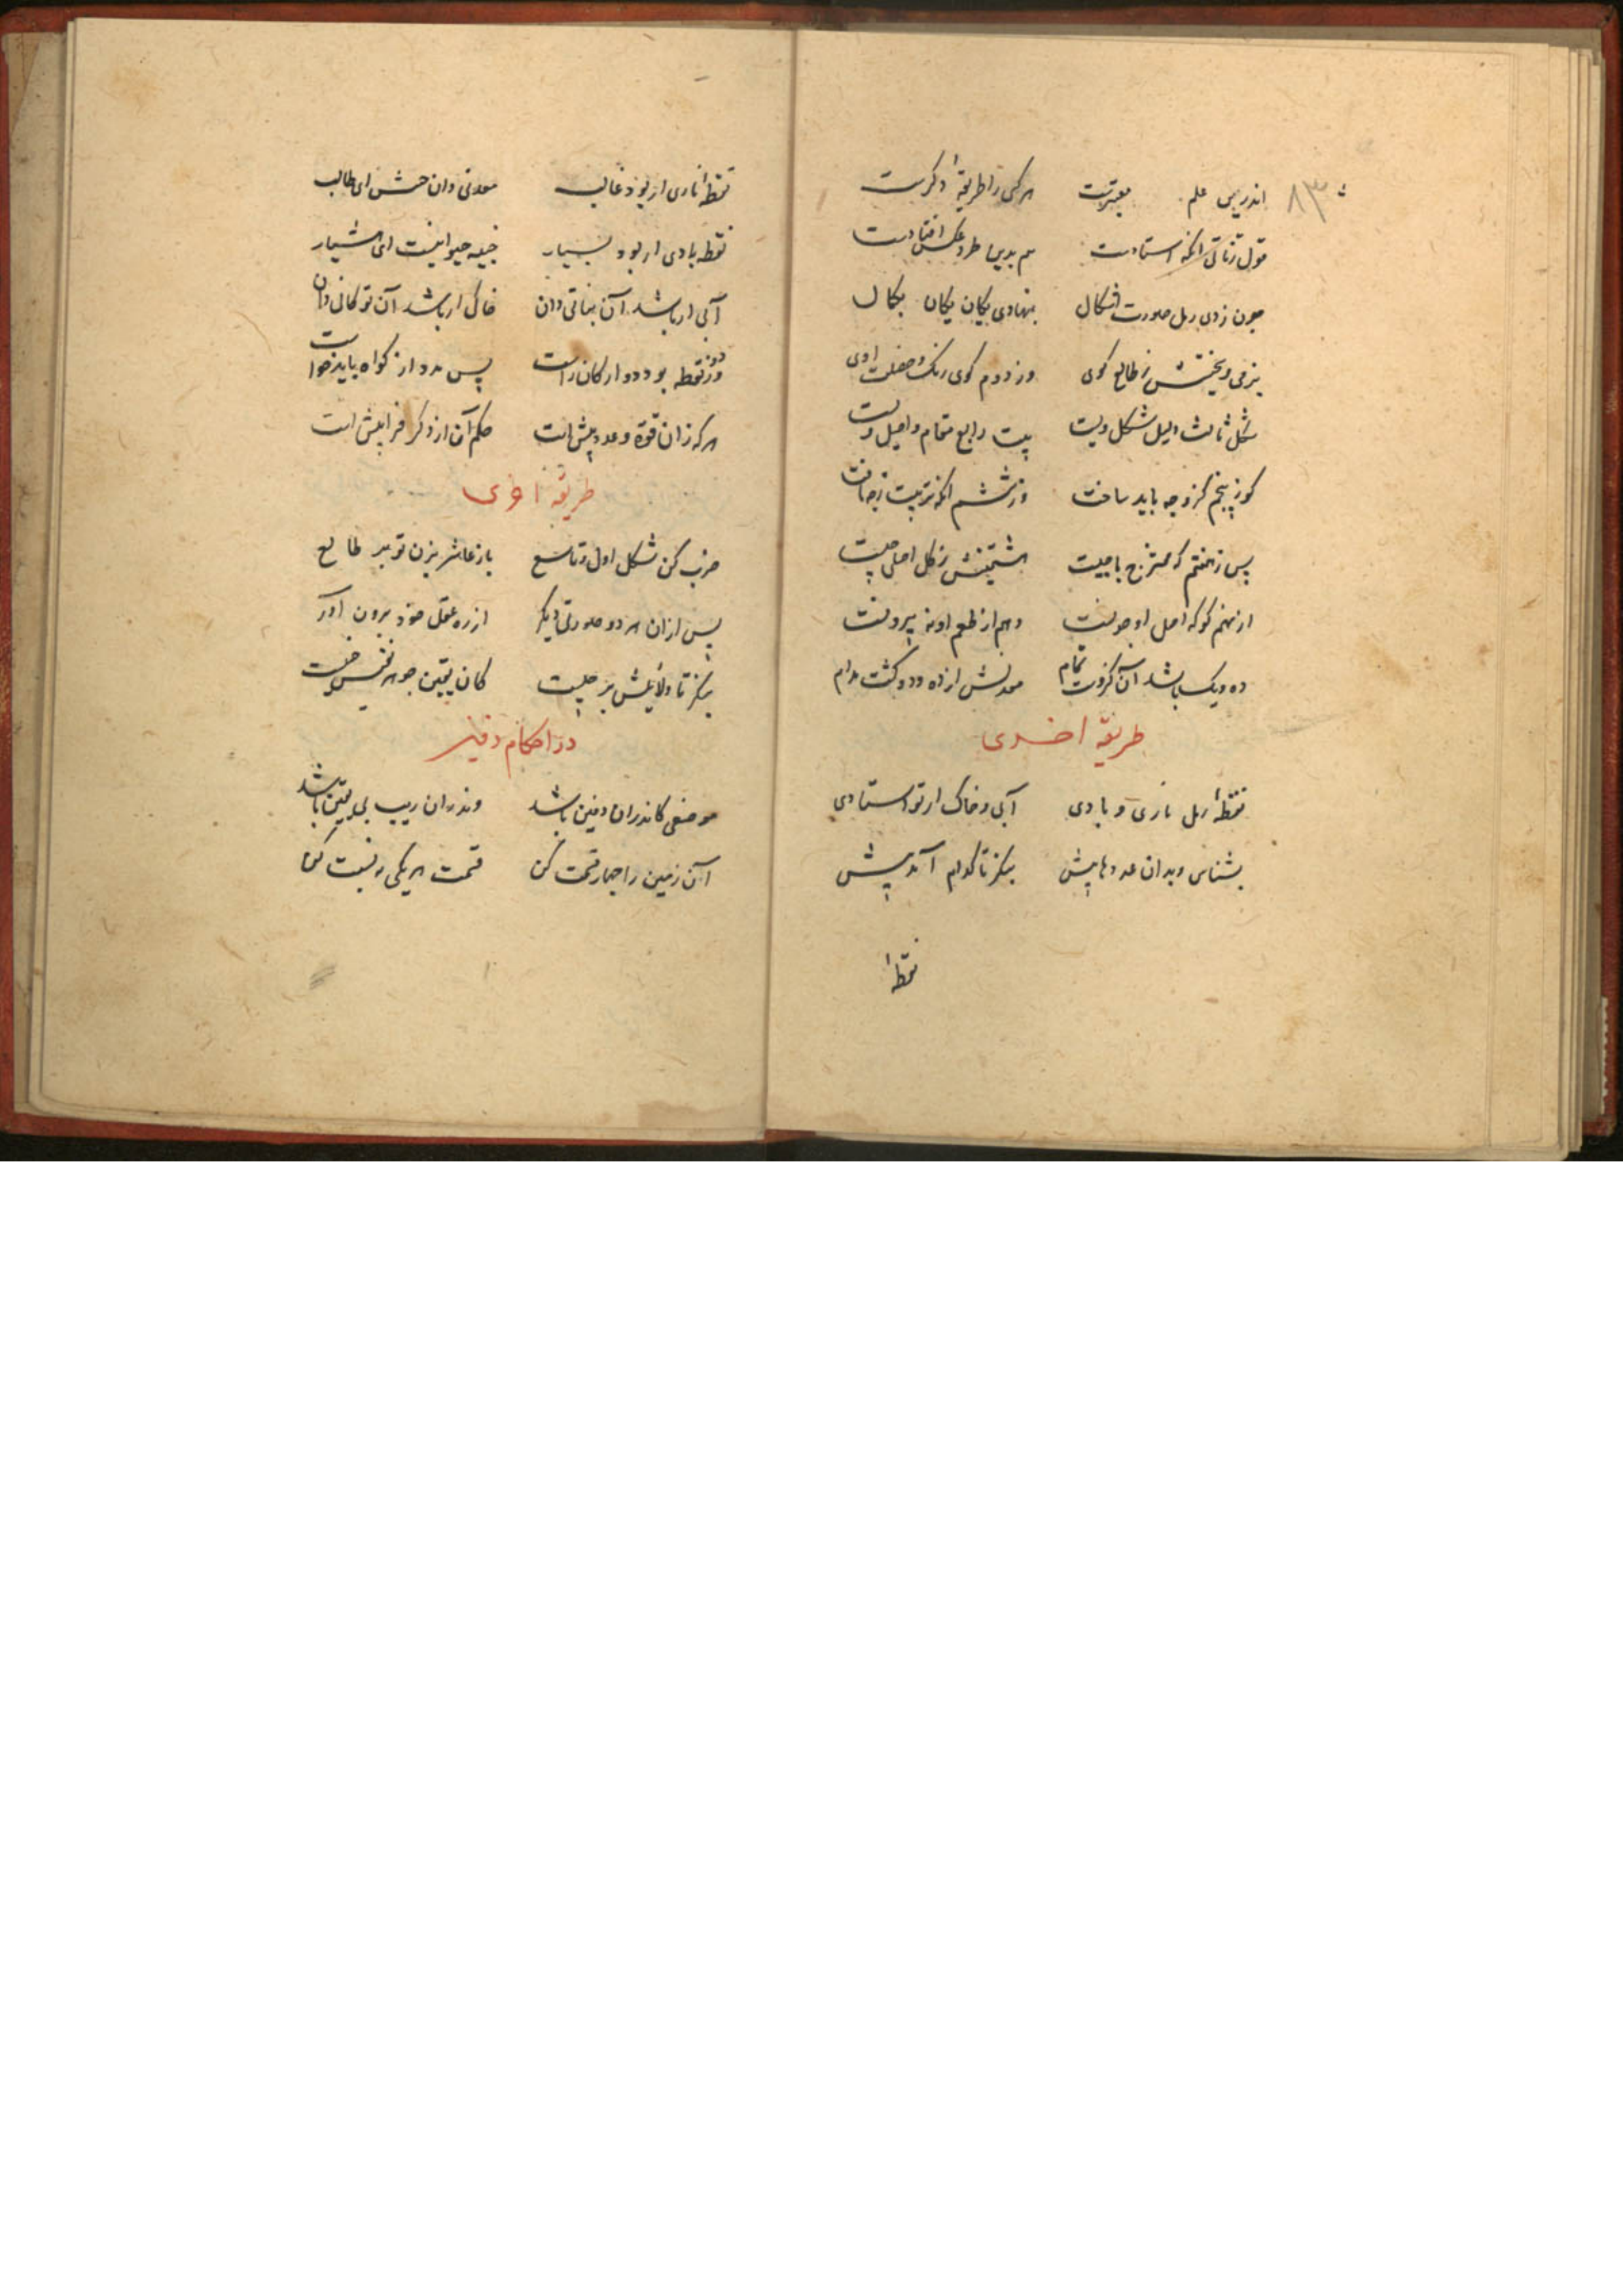 ۸۳
اندرین علم معتبرست هر کسی را طریقهٔ دکرست
قول زناتی انکه استادست هم بدین طرد عکس افتادست
چون زدی رمل صورت اشکال بنهادی یکان یکان بکمال
نرمی و سختیش ز طالع کوی وز دوم کوی رنک و خصلت اوی
شکل ثالث دلیل شکل ویست بیت رابع مقام و اصل ویست
کوز پنجم کزو چه باید ساخت وز ششم انکه تربیت زچه یافت
پس ز هفتم که ممتزج با چیست هشتمینش ز کل اصلی چیست
از نهم کو که اصل او چونست دهم از طعم او نه بیرونست
ده و یک باشد آن کزوست تمام معدنش از ده و دو کشت مدام
طریقه اخری
نقطهٔ رمل ناری و بادی آبی و خاک ار تو استادی
بشناس و بدان عددهایش بنکر تا کدام آمد پیش
نقطهٔ
نقطهٔ ناری ار بود غالب معدنی دان خبیش ای طالب
نقطه بادی ار بود بسیار خبیه حیوانیست ای هشیار
آبی ار باشد آن نباتی دان خاکی ار باشد آن تو کانی دان
ور دو نقطه بود دو ارکان راست پس مدد از کواه باید خواست
هر که زان قوة و عدد بیش است حکم آن از دکر فرا پیش است
طریقه اخری
ضرب کن شکل اول و تاسع باز عاشر بزن تو بر طالع
پس ازان هر دو صورتی دیکر از ره عقل خود برون آور
بنکر تا دلایلش بر چیست کان یقین جوهر نفیس خبیست
در احکام دفین
موضعی کاندران دفین باشد وندران ریب بی یقین باشد
آن زمین را چهار قسمت کن قسمت هر یکی به نسبت کن